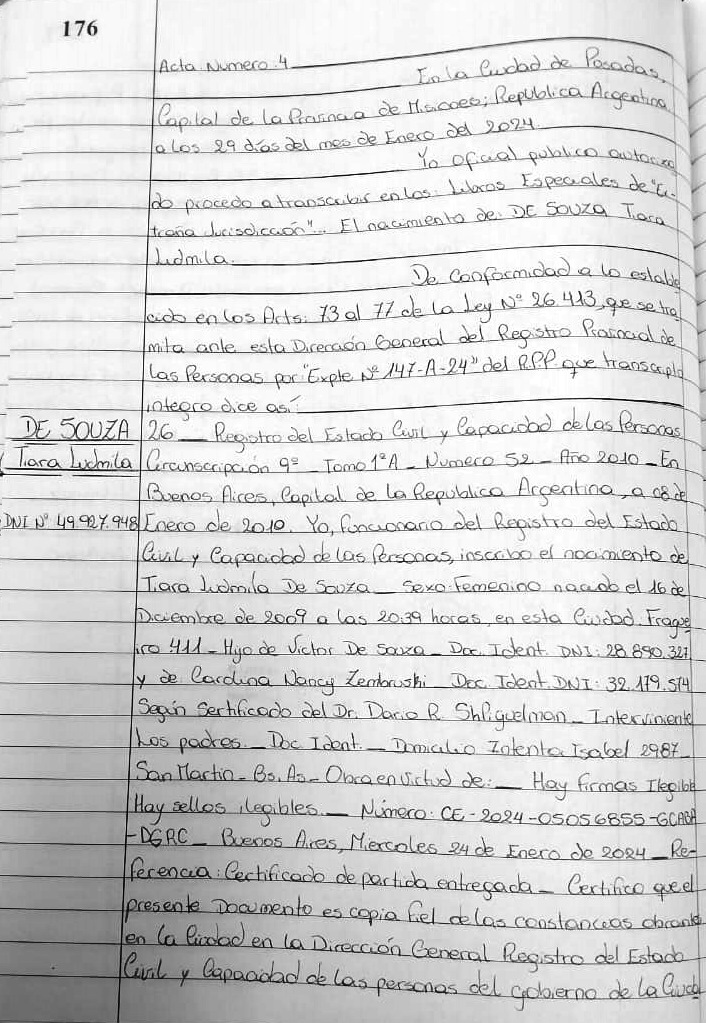 176
Acta Numero: 4
En la Ciudad de Posadas,
Capital de la Provincia de Misiones; Republica Argentina
a los 29 días del mes de Enero del 2024
Yo oficial publico autoriza
do procedo a transcribir en los: Libros Especiales de "Ex-
traña Jurisdicción"... El nacimiento de: DE SOUZA Tiara
Ludmila.
De Conformidad a lo estable
cido en los Arts: 73 al 77 de la Ley Nº 26.413, que se tra
mita ante esta Dirección General del Registro Provincial de
las Personas por "Expte Nº 147-A-24" del R.P.P. que transcripto
integro dice así:
DE SOUZA
Tiara Ludmila
DNI Nº 49.927.948
26 — Registro del Estado Civil y Capacidad de las Personas
Circunscripción 9º - Tomo 1ºA - Numero 52 - Año 2010 - En
Buenos Aires, Capital de la Republica Argentina, a 08 de
Enero de 2010. Yo, Funcionario del Registro del Estado
Civil y Capacidad de las Personas, inscribo el nacimiento de
Tiara Ludmila De Souza — Sexo: Femenino nacido el 16 de
Diciembre de 2009 a las 20:39 horas, en esta Ciudad. Frague
iro 411 - Hijo de Victor De Souza - Doc. Ident. DNI: 28.890.327
y de Carolina Nancy Zembruski Doc. Ident. DNI: 32.179.574
Según Sertificado del Dr. Dario R. Shliguelman - Interviniente
Los padres. — Doc Ident. — Domicilio Intenta Isabel 2987 -
San Martin - Bs. As - Obra en Virtud de: — Hay firmas Ilegible
Hay sellos ilegibles. — Número: CE-2024-05056855-GCABA
-DGRC - Buenos Aires, Miercoles 24 de Enero de 2024 - Re-
ferencia: Certificado de partida entregada - Certifico que el
presente Documento es copia fiel de las constancias obrante
en la Ciudad en la Dirección General Registro del Estado
Civil y Capacidad de las personas del gobierno de la Ciudad